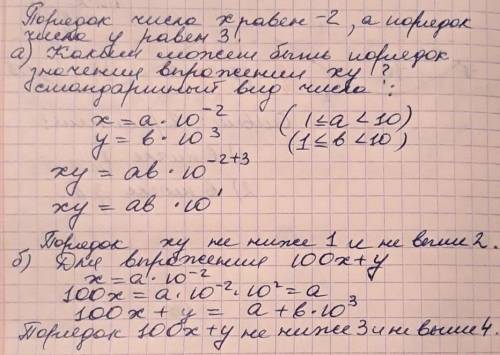 Порядок числа x равен -2, а порядок
числа y равен 3.
а) Каким может быть порядок
значении выражении xy?
Стандартный вид числа:
x = a · 10⁻² (1≤a<10)
y = b · 10³ (1≤b<10)
xy = ab · 10⁻²⁺³
xy = ab · 10¹
Порядок xy не ниже 1 и не выше 2.
б) Для выражения 100x+y
x = a · 10⁻²
100x = a · 10⁻² · 10² = a
100x + y = a + b · 10³
Порядок 100x+y не ниже 3 и не выше 4.